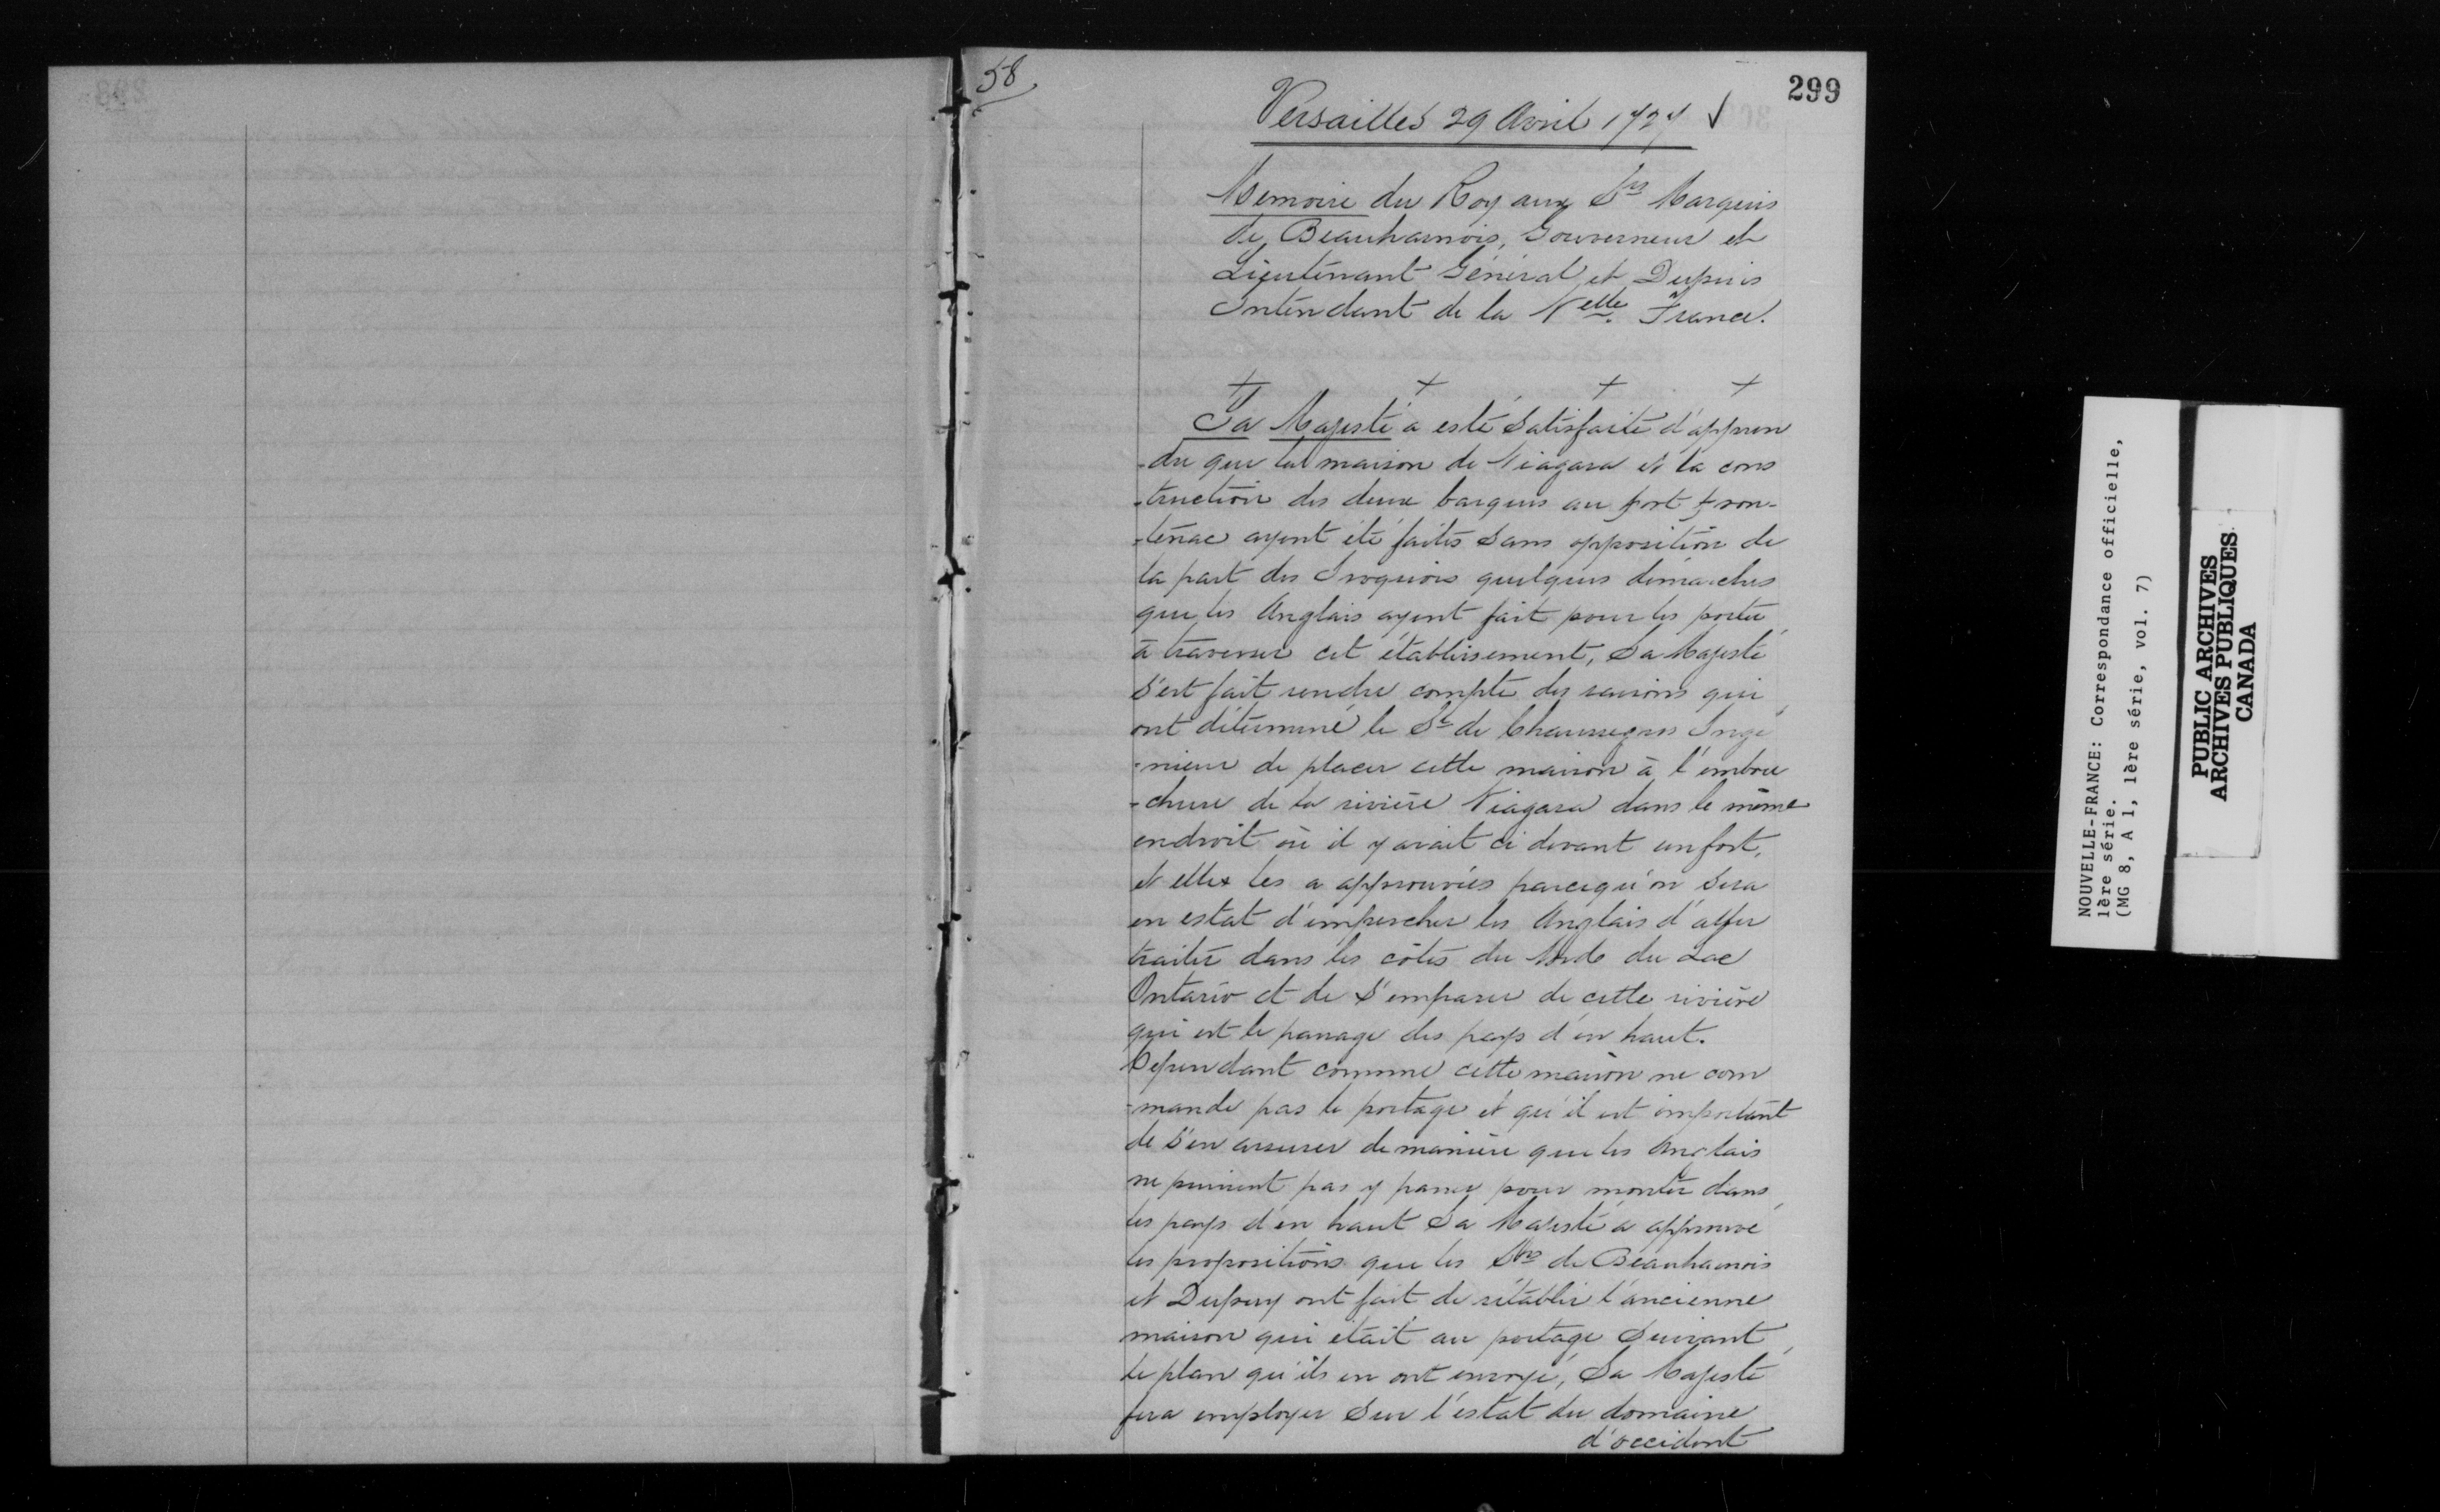 58
299
Versailles 29 Avril 1727
Memoire du Roy aux Srs Marquis
de Beauharnois, Gouverneur et
Lieutenant Général et Dupuis
Intendant de la Nelle. France.
+ + + +
Sa Majesté a esté Satisfaite d'appren
-dre que la maison de Niagara et la cons
-truction des deux barques au fort Fron-
-tenac ayent été faites Sans opposition de
la part des Iroquois quelques démarches
que les Anglais ayent fait pour les porter
à traverser cet établissement, Sa Majesté
S'est fait rendre compte des raisons qui
ont déterminé le Sr de Chaussegros Ingé
-nieur de placer cette maison à l'embou
-chure de la rivière Niagara dans le même
endroit où il y avait ci devant un fort,
et elle les a approuvées parcequ'on Sera
en estat d'empescher les Anglais d'aller
traiter dans les côtes du Nord du Lac
Ontario et de S'emparer de cette rivière
qui est le passage des pays d'en haut.
Cependant comme cette maison ne com
-mande pas le portage et qu'il est important
de S'en assurer de manière que les Anglais
ne puissent pas y passer pour monter dans
les pays d'en haut Sa Majesté a approuvé
les propositions que les Srs de Beauharnois
et Dupuy ont fait de rétablir l'ancienne
maison qui était au portage Suivant
le plan qu'ils en ont envoyé, Sa Majesté
fera employer Sur l'estat du domaine
d'occident
NOUVELLE-FRANCE: Correspondance officielle,
1ère série.
(MG 8, A 1, 1ère série, vol. 7)
PUBLIC ARCHIVES
ARCHIVES PUBLIQUES
CANADA